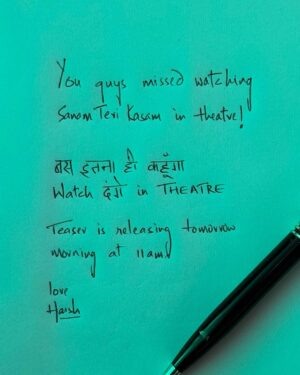 You guys missed watching
Sanam Teri Kasam in theatre!
बस इतना ही कहूँगा
Watch दंगे in THEATRE
Teaser is releasing tomorrow
morning at 11am!
love
Harsh